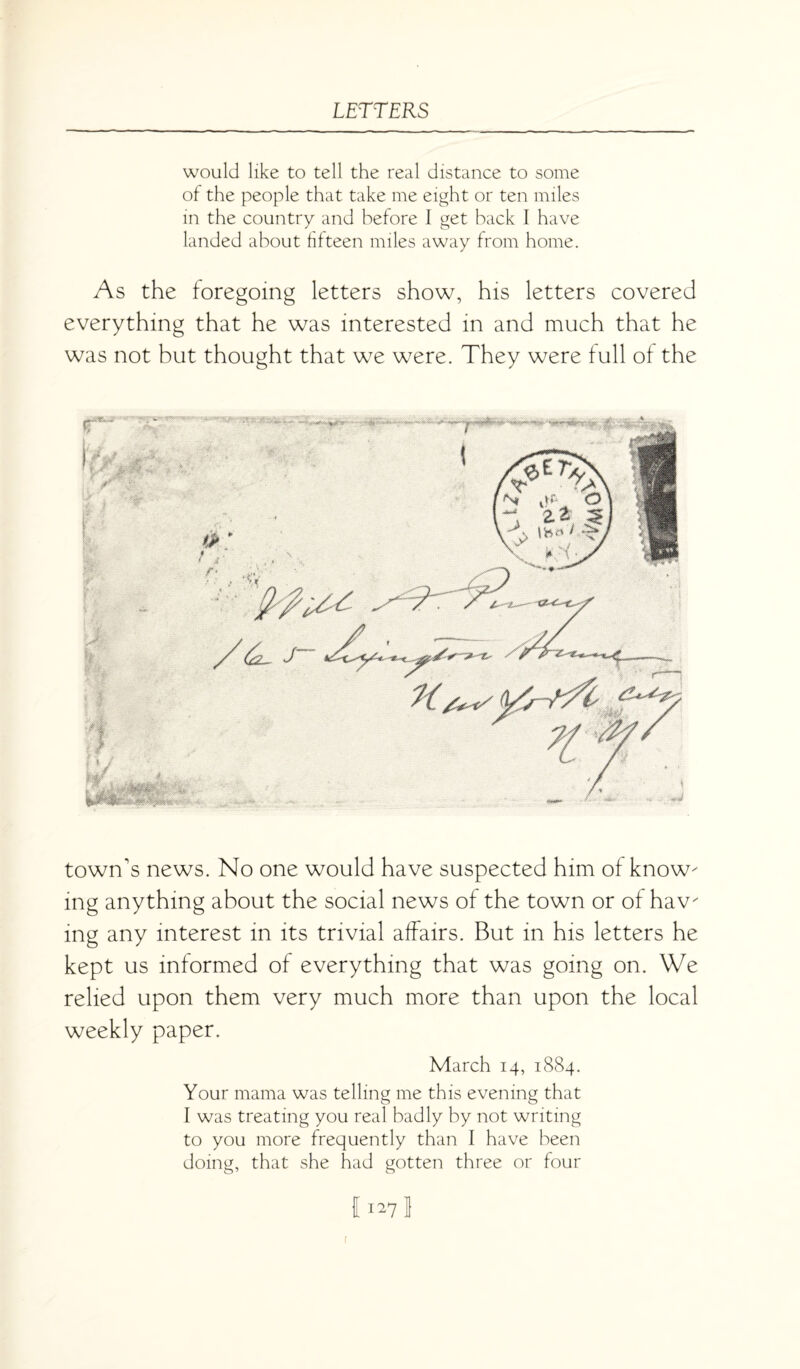 LETTERS
would like to tell the real distance to some
of the people that take me eight or ten miles
in the country and before I get back I have
landed about fifteen miles away from home.
As the foregoing letters show, his letters covered
everything that he was interested in and much that he
was not but thought that we were. They were full of the
ELIZABETHTOWN
22
KY.
Will
165 Lexington
New York City
N Y
town's news. No one would have suspected him of know-
ing anything about the social news of the town or of hav-
ing any interest in its trivial affairs. But in his letters he
kept us informed of everything that was going on. We
relied upon them very much more than upon the local
weekly paper.
March 14, 1884.
Your mama was telling me this evening that
I was treating you real badly by not writing
to you more frequently than I have been
doing, that she had gotten three or four
[127]